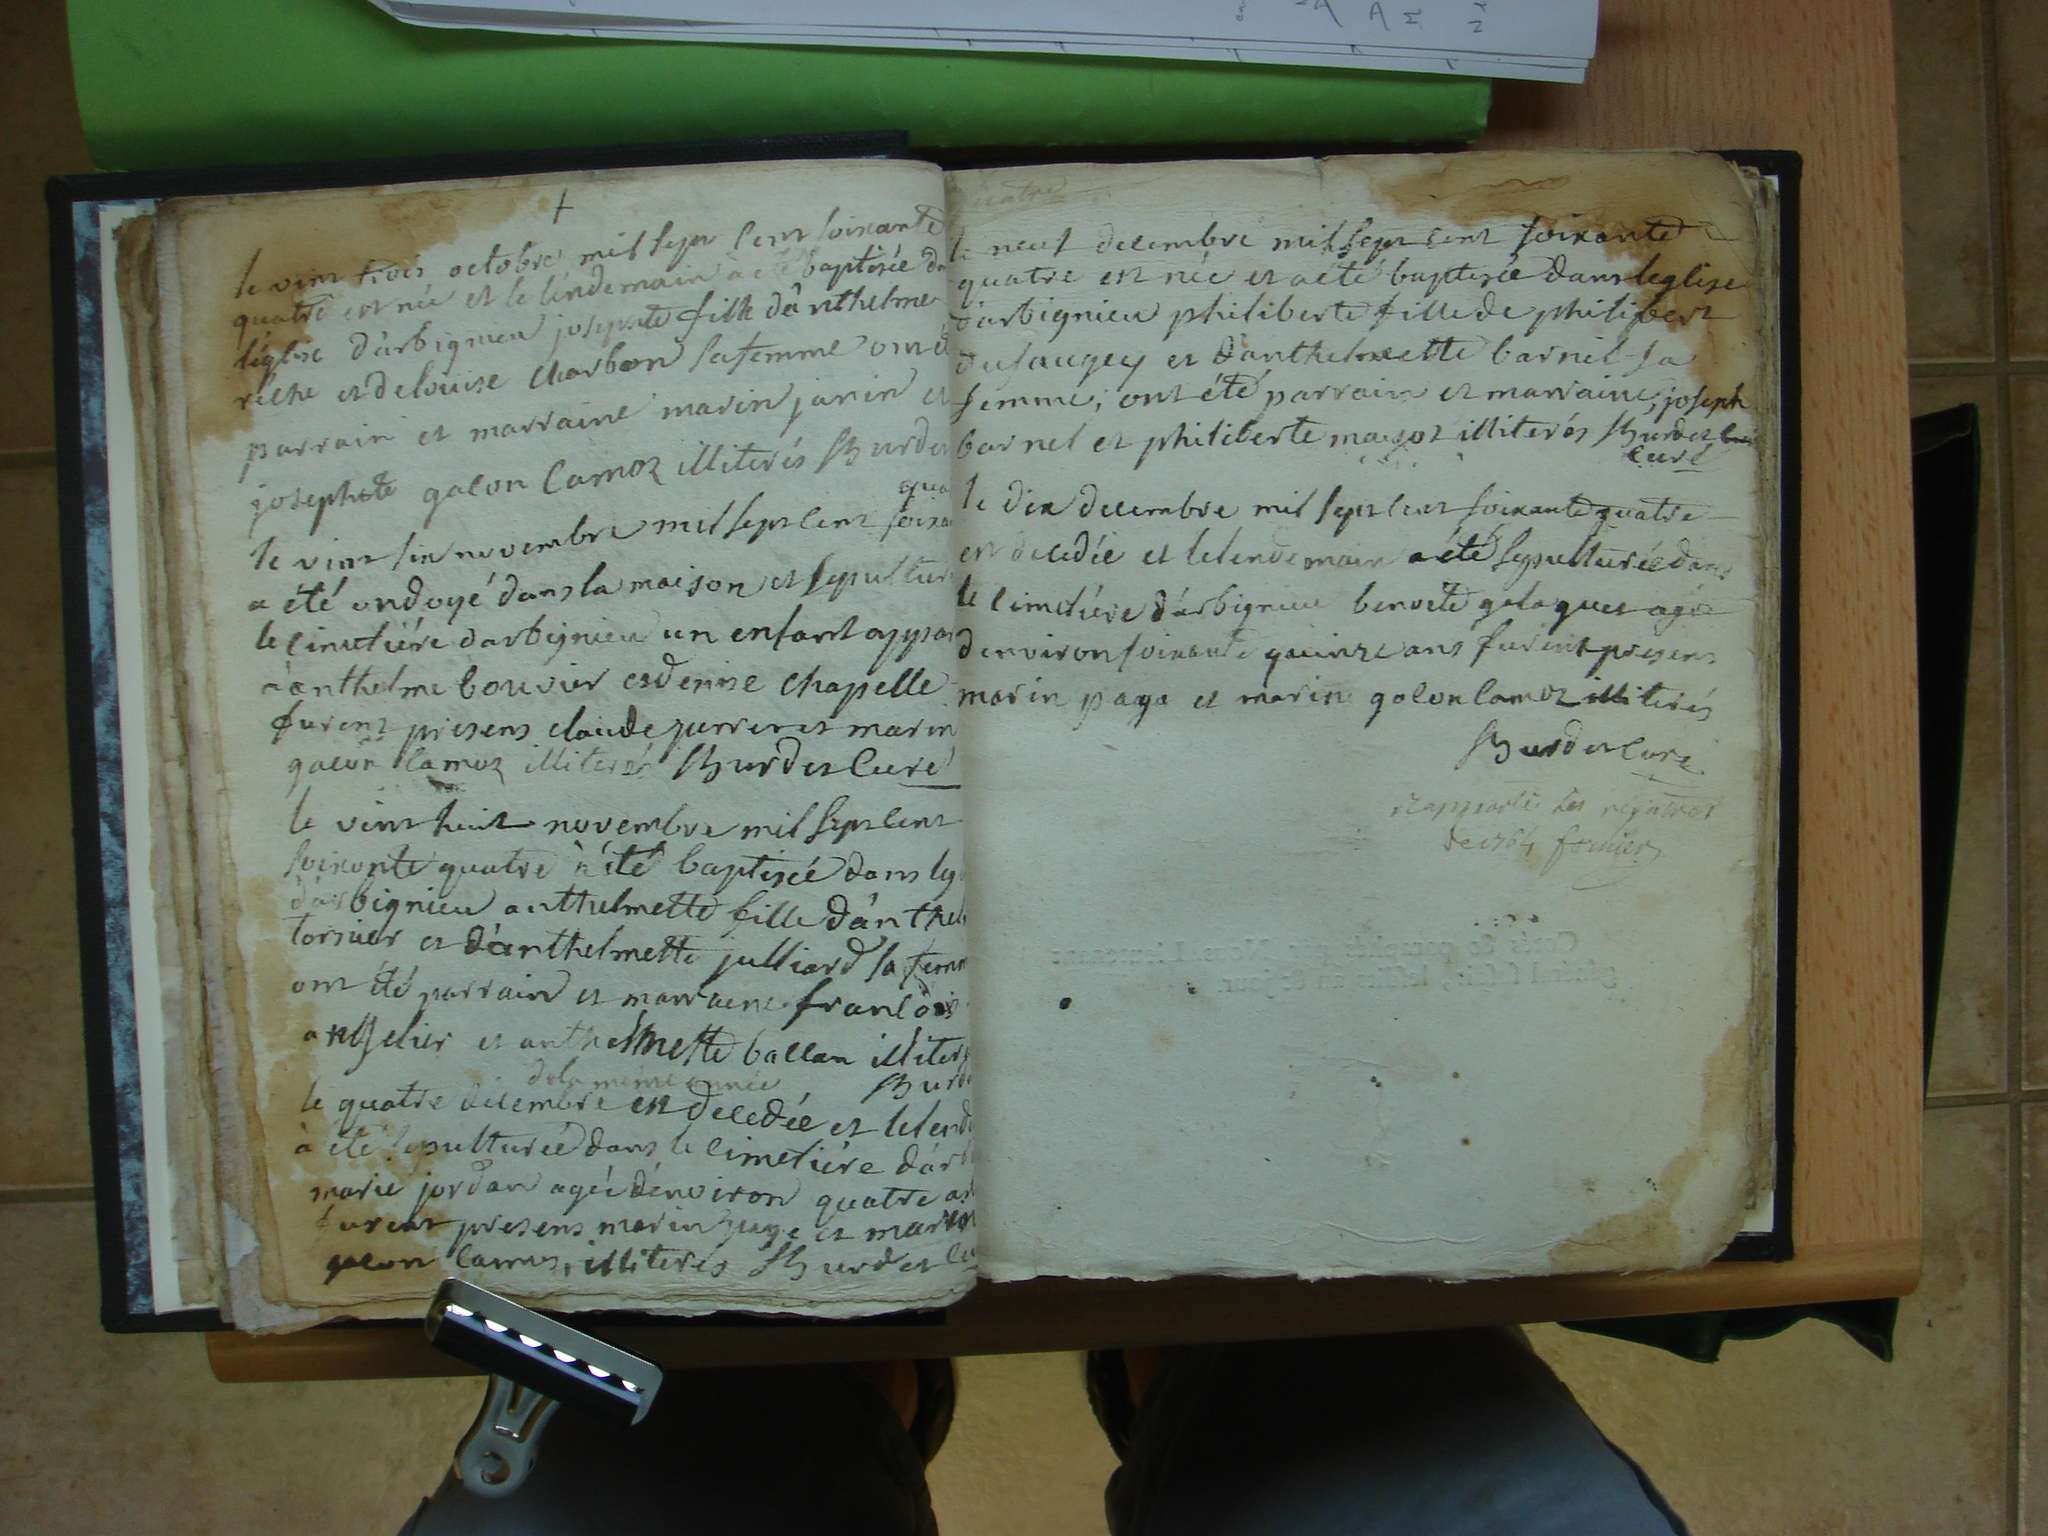 le vint trois octobre mil sept cent soixante
quatre est née et le lindemain à été baptisée da
léglise d'arbignieu josephte fille d'ânthelme
reche et delouise charbon safemme ont é
parrain et marraine marin janin et
josephte galon lamoz illiterés SBurdet
qua
le vint sin novembre mil sept cent soixan
a été ondoyé dans la maison et sepultur
le cimetiére darbignieu un enfant appar
à anthelme bouvier etdenise chapelle
furent presens claude et marin
galon lamoz illiterés SBurdet Curé
le vint huit novembre mil sept cent
soixante quatre à été baptisée dans leg
d'arbignieu anthelmette fille d'ânthel
tornier et d'anthelmette julliard sa femm
ont été parrain et marraine francois
angelier et anthelmette ballan illiter
dela même année SBurd
le quatre décembre est decedée et lelend
à été sepulturée dans le cimetiére d'arb
marie jordan agée d'environ quatre an
furent presens marin juge et marin
galon lamoz, illiterés SBurdet Cu
quatre
le neuf decembre mil sept cent soixante
quatre est née et aété baptisée dans leglise
d'arbignieu philiberte fille de philibert
dusaugey et d'anthelmette barnel sa
femme, ont été parrain et marraine, joseph
barnel et philiberte illiterés SBurdet
Curé
le dix decembre mil sept cent soixante quatre
est decedée et lelendemain a été sepulturée dans
le cimetiére d'arbignieu benoite agée
d'environ soixante quinze ans furent presens
marin et marin galon lamoz illiterés
SBurdet Curé
rapporté les registres
de 1764